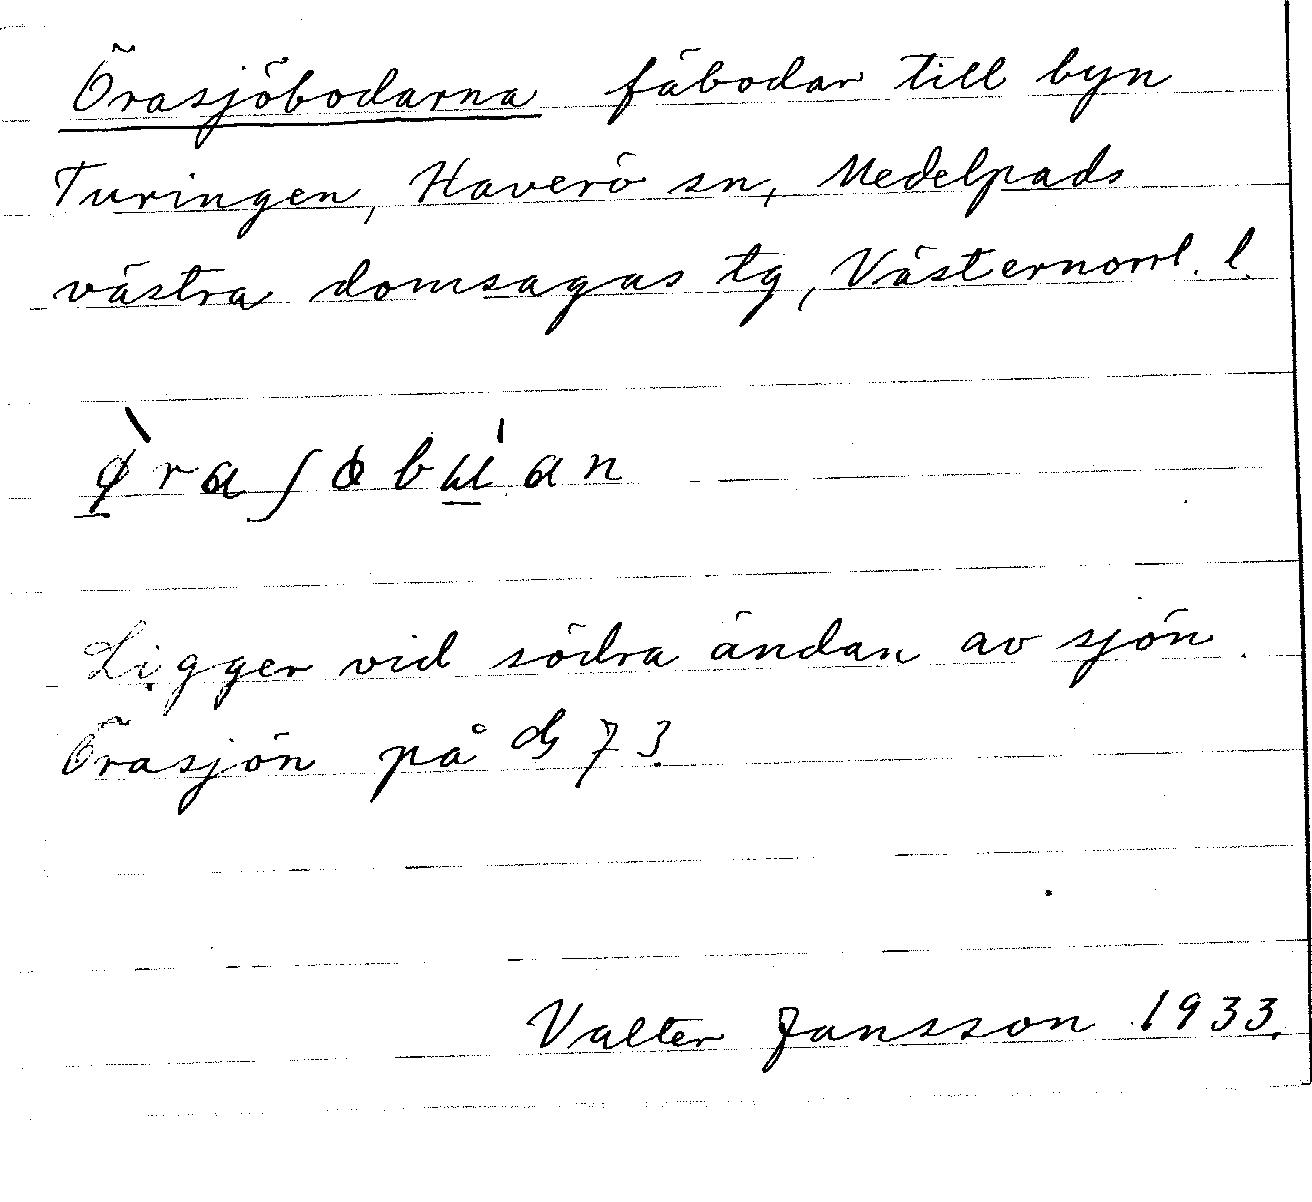 Örasjöbodarna fäbodar till byn
Turingen, Haverö sn, Medelpads
västra domsagas tg, Västernorrl. l.
Ligger vid södra ändan av sjön
Örasjön på G 73.
Valter Jansson 1933.